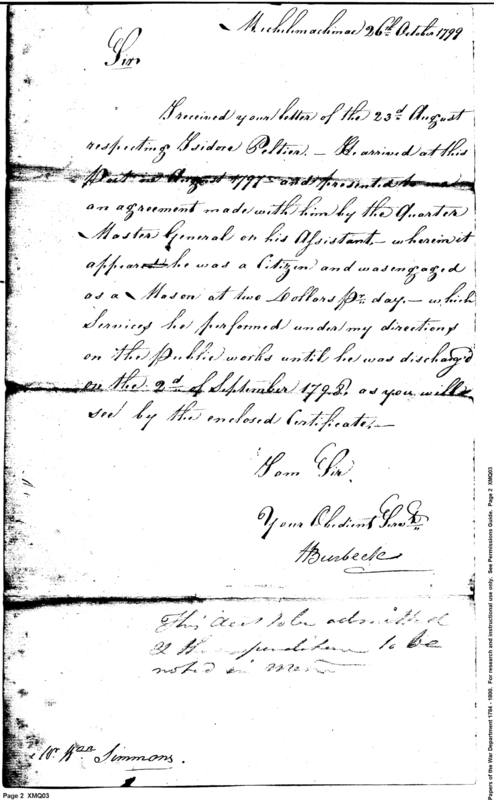 Michilimackinac 26th October 1799
Sir
I received your letter of the 23d August
respecting Isidore Peltier. — He arrived at this
Post in August 1797 and presented to me
an agreement made with him by the Quarter
Master General or his Assistant, — wherein it
appears he was a Citizen and was engaged
as a Mason at two Dollars Pr. day. — which
Services he performed under my directions
on the Public works until he was discharg'd
on the 2d of September 1798. as you will
see by the enclosed Certificate. —
I am Sir.
Your Obedient Servt.
HBurbeck
This acct to be admitted
& the to be
noted in
Mr. Wm Simmons.
Page 2 XMQ03
Papers of the War Department 1784 - 1800. For research and instructional use only. See Permissions Guide. Page 2 XMQ03